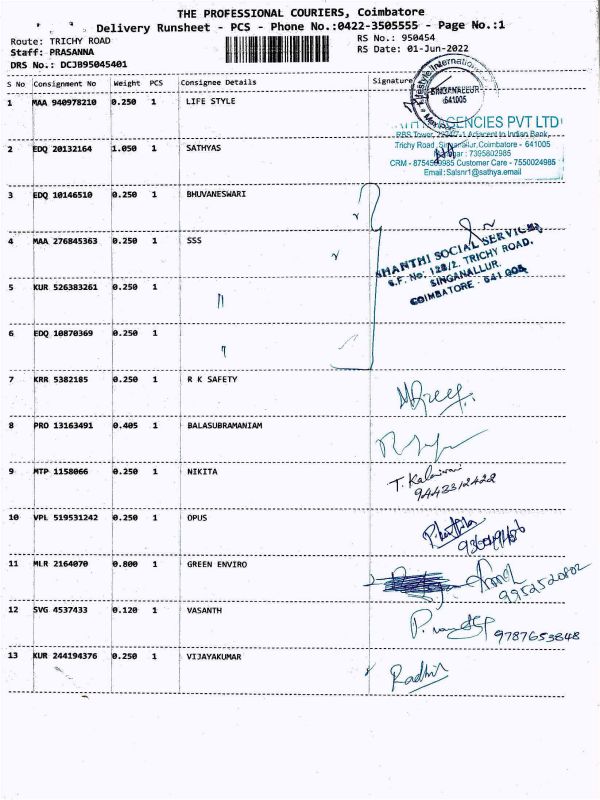 THE PROFESSIONAL COURIERS, Coimbatore
Delivery Runsheet - PCS - Phone No.:0422-3505555 - Page No.:1
Route: TRICHY ROAD
RS No.: 950454
Staff: PRASANNA
RS Date: 01-Jun-2022
DRS No.: DCJB95045401
S No Consignment No Weight PCS Consignee Details Signature
1 MAA 940978210 0.250 1 LIFE STYLE
Lifestyle International
SINGANALLUR
641005
2 EDQ 20132164 1.050 1 SATHYAS
AGENCIES PVT LTD
Adjacent to Indian Bank,
Trichy Road, Singanallur, Coimbatore - 641005
7395802985
Customer Care - 7550024985
Email: Salsnr1@sathya.email
3 EDQ 10146510 0.250 1 BHUVANESWARI
4 MAA 276845363 0.250 1 SSS
SHANTHI SOCIAL SERVICES
S.F. No: 128/2, TRICHY ROAD,
SINGANALLUR,
COIMBATORE - 641 005
5 KUR 526383261 0.250 1 "
6 EDQ 10870369 0.250 1 "
7 KRR 5382185 0.250 1 R K SAFETY
8 PRO 13163491 0.405 1 BALASUBRAMANIAM
9 MTP 1158066 0.250 1 NIKITA
T. Kalaivani
9442312422
10 VPL 519531242 0.250 1 OPUS
11 MLR 2164070 0.800 1 GREEN ENVIRO
9952520802
12 SVG 4537433 0.120 1 VASANTH
9787653848
13 KUR 244194376 0.250 1 VIJAYAKUMAR